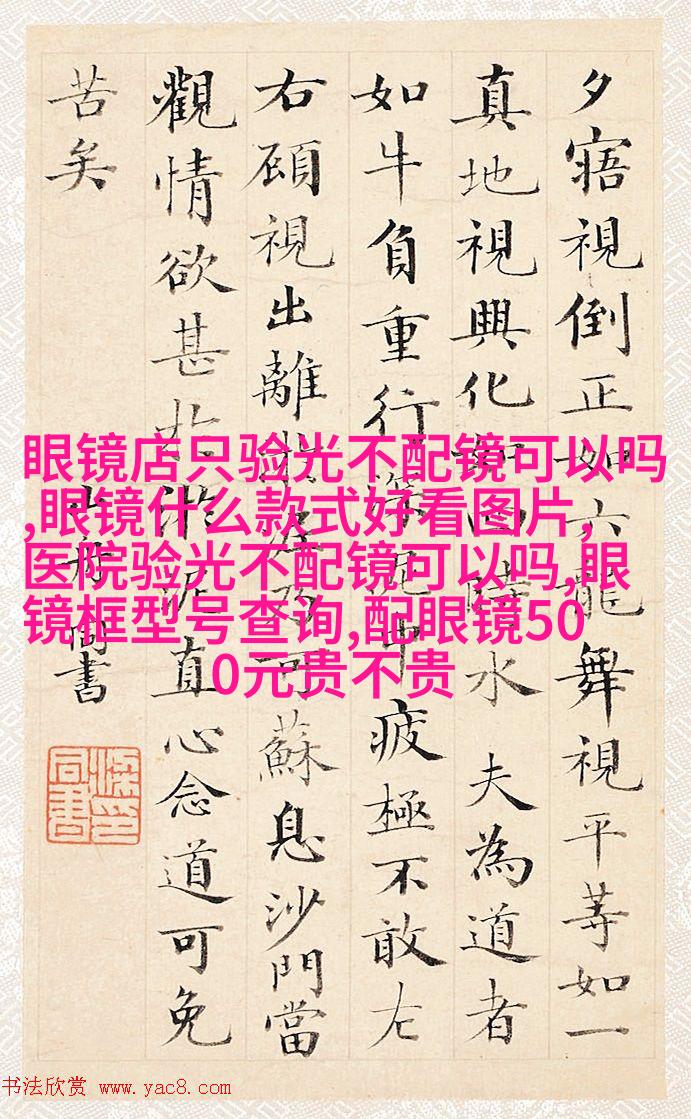 夕寤視倒正如六龍舞視平等如一
真地視興化如四時水夫為道者
如牛負重行深泥中疲極不敢左
右顧視出離淤泥乃可蘇息沙門當
觀情欲甚於淤泥直心念道可免
苦矣
書
眼镜店只验光不配镜可以吗
,眼镜什么款式好看图片,
医院验光不配镜可以吗,眼
镜框型号查询,配眼镜50
0元贵不贵
书法欣赏 www.yac8.com